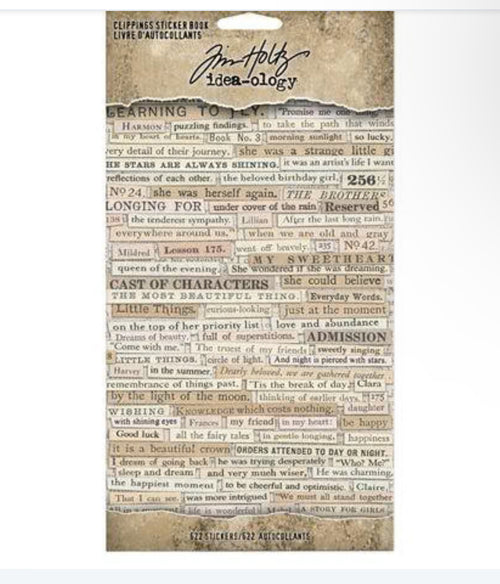 CLIPPINGS STICKER BOOK
LIVRE D'AUTOCOLLANTS
Tim Holtz
idea-ology
LEARNING TO FLY. "Promise me one thing,
HARMON puzzling findings. to take the path that winds
in my heart of hearts. Book No. 3 morning sunlight so lucky,
very detail of their journey. she was a strange little g
HE STARS ARE ALWAYS SHINING. it was an artist's life I want
reflections of each other. the beloved birthday girl, 256
Nº 24. she was herself again. THE BROTHERS
LONGING FOR under cover of the rain Reserved 56
138 the tenderest sympathy. Lillian After the last long rain.
everywhere around us." when we are old and gray
Mildred Lesson 175. went off bravely. 235 Nº 42.
MY SWEETHEART
queen of the evening. She wondered if she was dreaming.
CAST OF CHARACTERS she could believe
THE MOST BEAUTIFUL THING. Everyday Words.
Little Things. curious-looking just at the moment
on the top of her priority list love and abundance
Dreams of beauty. full of superstitions. ADMISSION
"Come with me." The truest of my friends sweetly singing
LITTLE THINGS. circle of light. And night is pierced with stars.
Harvey in the summer, Dearly beloved, we are gathered together
remembrance of things past. 'Tis the break of day, Clara
by the light of the moon. thinking of earlier days. 175
WISHING KNOWLEDGE which costs nothing. daughter
with shining eyes Frances my friend in my heart: be happy
Good luck all the fairy tales in gentle longing, happiness
it is a beautiful crown ORDERS ATTENDED TO DAY OR NIGHT.
I dream of going back he was trying desperately "Who? Me?"
sleep and dream and very much wiser, He was charming,
the happiest moment to be cheerful and optimistic. Claire,
That I can see. was more intrigued "We must all stand together
life is wonderful Mabel A STORY FOR GIRLS
622 STICKERS/622 AUTOCOLLANTS